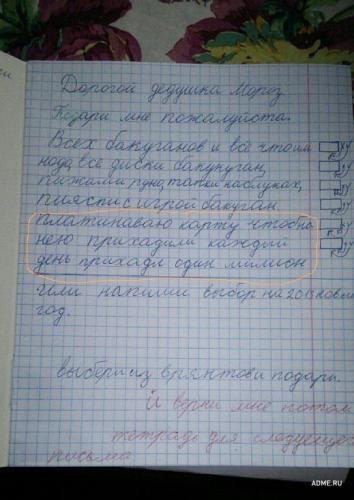 Дорогой дедушка Мороз
Подари мне пожалуйста.
Всех бакуганов и всё что им
нода, все диски бакукуган,
пиеспис игрой бакуган
платинаваю карту чтобы
нею приходили каждый
день приходи один милион
Или напиши выбор на 2013 новый
год.
выбери из врянтови подарк.
И верни мне потом
тетрадь для следующего
письма
ADME.RU